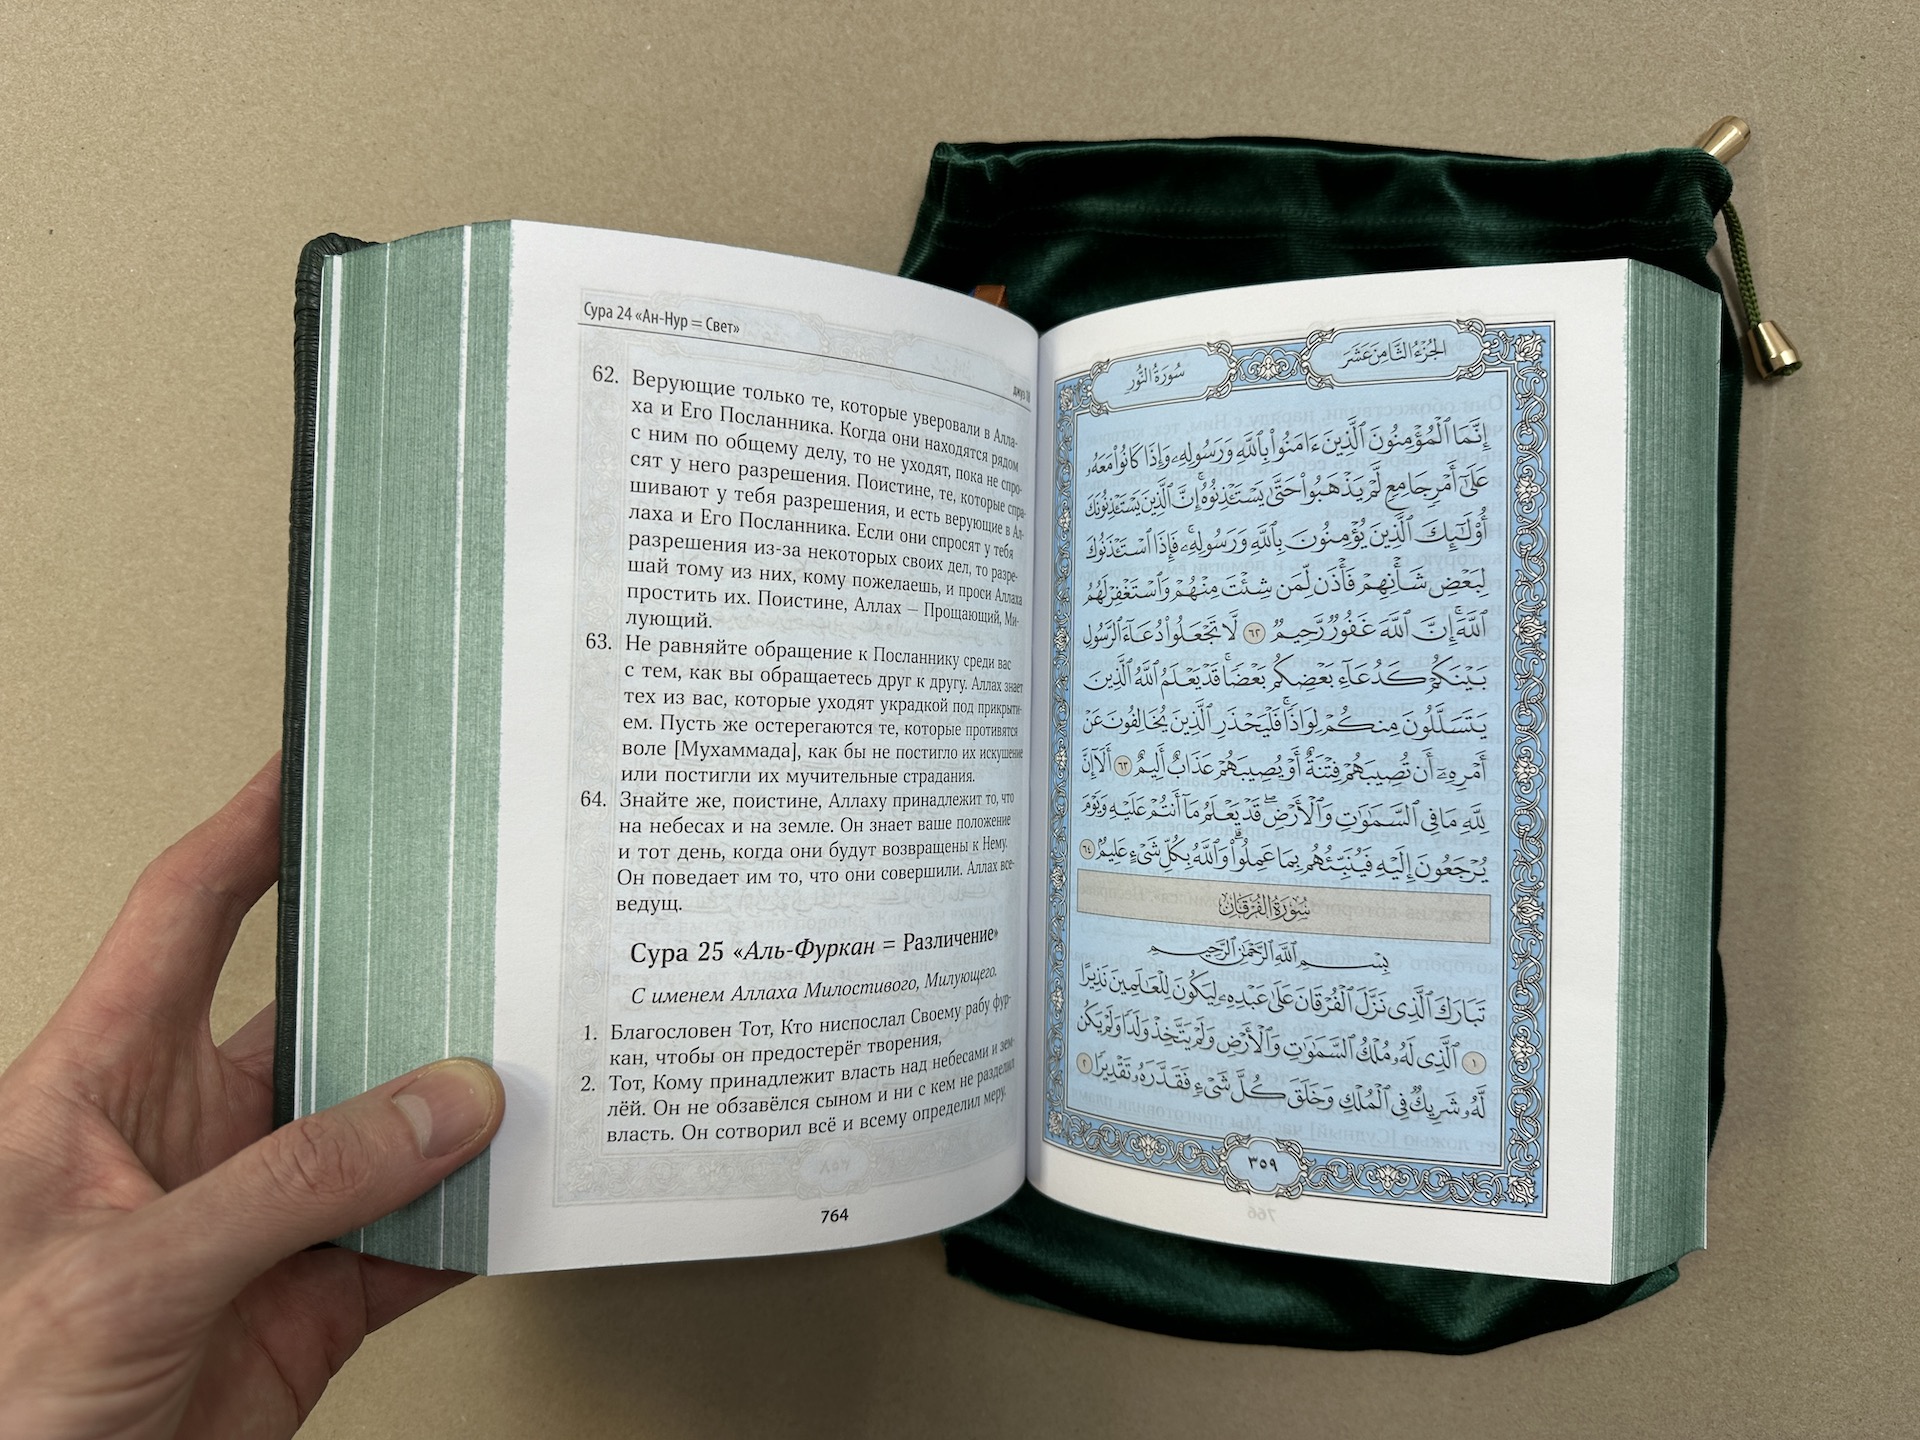 Сура 24 «Ан-Нур = Свет»
джуз 18
62. Верующие только те, которые уверовали в Алла-
ха и Его Посланника. Когда они находятся рядом
с ним по общему делу, то не уходят, пока не спро-
сят у него разрешения. Поистине, те, которые спра-
шивают у тебя разрешения, и есть верующие в Ал-
лаха и Его Посланника. Если они спросят у тебя
разрешения из-за некоторых своих дел, то разре-
шай тому из них, кому пожелаешь, и проси Аллаха
простить их. Поистине, Аллах — Прощающий, Ми-
лующий.
63. Не равняйте обращение к Посланнику среди вас
с тем, как вы обращаетесь друг к другу. Аллах знает
тех из вас, которые уходят украдкой под прикрыти-
ем. Пусть же остерегаются те, которые противятся
воле [Мухаммада], как бы не постигло их искушение
или постигли их мучительные страдания.
64. Знайте же, поистине, Аллаху принадлежит то, что
на небесах и на земле. Он знает ваше положение
и тот день, когда они будут возвращены к Нему.
Он поведает им то, что они совершили. Аллах все-
ведущ.
Сура 25 «Аль-Фуркан = Различение»
С именем Аллаха Милостивого, Милующего.
1. Благословен Тот, Кто ниспослал Своему рабу фур-
кан, чтобы он предостерёг творения,
2. Тот, Кому принадлежит власть над небесами и зем-
лёй. Он не обзавёлся сыном и ни с кем не разделил
власть. Он сотворил всё и всему определил меру.
764
الجُزْءُ الثَّامِنَ عَشَرَ
سُورَةُ النُّورِ
إِنَّمَا ٱلْمُؤْمِنُونَ ٱلَّذِينَ ءَامَنُوا۟ بِٱللَّهِ وَرَسُولِهِۦ وَإِذَا كَانُوا۟ مَعَهُۥ
عَلَىٰٓ أَمْرٍ جَامِعٍ لَّمْ يَذْهَبُوا۟ حَتَّىٰ يَسْتَـْٔذِنُوهُ ۚ إِنَّ ٱلَّذِينَ يَسْتَـْٔذِنُونَكَ
أُو۟لَـٰٓئِكَ ٱلَّذِينَ يُؤْمِنُونَ بِٱللَّهِ وَرَسُولِهِۦ ۚ فَإِذَا ٱسْتَـْٔذَنُوكَ
لِبَعْضِ شَأْنِهِمْ فَأْذَن لِّمَن شِئْتَ مِنْهُمْ وَٱسْتَغْفِرْ لَهُمُ
ٱللَّهَ ۚ إِنَّ ٱللَّهَ غَفُورٌ رَّحِيمٌ ٦٢ لَّا تَجْعَلُوا۟ دُعَآءَ ٱلرَّسُولِ
بَيْنَكُمْ كَدُعَآءِ بَعْضِكُم بَعْضًا ۚ قَدْ يَعْلَمُ ٱللَّهُ ٱلَّذِينَ
يَتَسَلَّلُونَ مِنكُمْ لِوَاذًا ۚ فَلْيَحْذَرِ ٱلَّذِينَ يُخَالِفُونَ عَنْ
أَمْرِهِۦٓ أَن تُصِيبَهُمْ فِتْنَةٌ أَوْ يُصِيبَهُمْ عَذَابٌ أَلِيمٌ ٦٣ أَلَآ إِنَّ
لِلَّهِ مَا فِى ٱلسَّمَـٰوَٰتِ وَٱلْأَرْضِ ۖ قَدْ يَعْلَمُ مَآ أَنتُمْ عَلَيْهِ وَيَوْمَ
يُرْجَعُونَ إِلَيْهِ فَيُنَبِّئُهُم بِمَا عَمِلُوا۟ ۗ وَٱللَّهُ بِكُلِّ شَىْءٍ عَلِيمٌۢ ٦٤
سُورَةُ الفُرْقَانِ
بِسْمِ ٱللَّهِ ٱلرَّحْمَـٰنِ ٱلرَّحِيمِ
تَبَارَكَ ٱلَّذِى نَزَّلَ ٱلْفُرْقَانَ عَلَىٰ عَبْدِهِۦ لِيَكُونَ لِلْعَـٰلَمِينَ نَذِيرًا
١ ٱلَّذِى لَهُۥ مُلْكُ ٱلسَّمَـٰوَٰتِ وَٱلْأَرْضِ وَلَمْ يَتَّخِذْ وَلَدًا وَلَمْ يَكُن
لَّهُۥ شَرِيكٌ فِى ٱلْمُلْكِ وَخَلَقَ كُلَّ شَىْءٍ فَقَدَّرَهُۥ تَقْدِيرًا ٢
٣٥٩